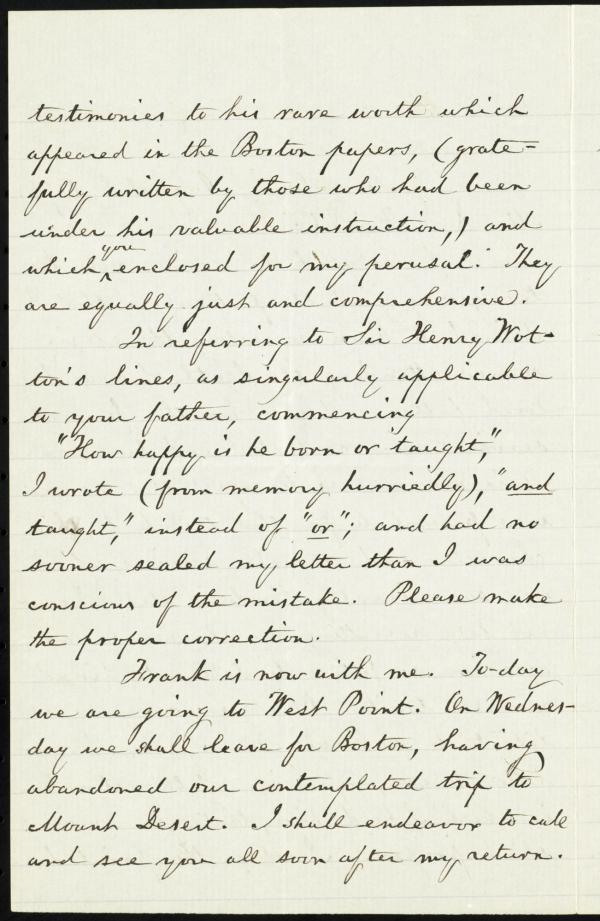 testimonies to his rare worth which
appeared in the Boston papers, (grate-
fully written by those who had been
under his valuable instruction,) and
which you enclosed for my perusal. They
are equally just and comprehensive.
In referring to Sir Henry Wot-
ton's lines, as singularly applicable
to your father, commencing
"How happy is he born or taught,"
I wrote (from memory hurriedly), "and
taught," instead of "or"; and had no
sooner sealed my letter than I was
conscious of the mistake. Please make
the proper correction.
Frank is now with me. To-day
we are going to West Point. On Wednes-
day we shall leave for Boston, having
abandoned our contemplated trip to
Mount Desert. I shall endeavor to call
and see you all soon after my return.